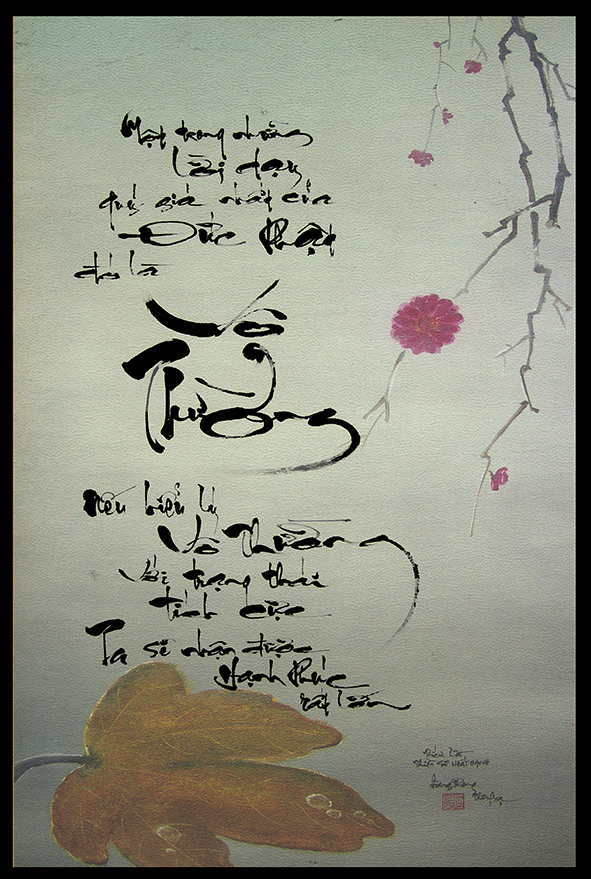 Một trong những
lời dạy
quý giá nhất của
Đức Phật
đó là
Vô
Thường
Nếu hiểu lý
Vô Thường
Với trạng thái
tích cực
Ta sẽ nhận được
Hạnh Phúc
rất lớn
Thiền Sư NHẤT HẠNH